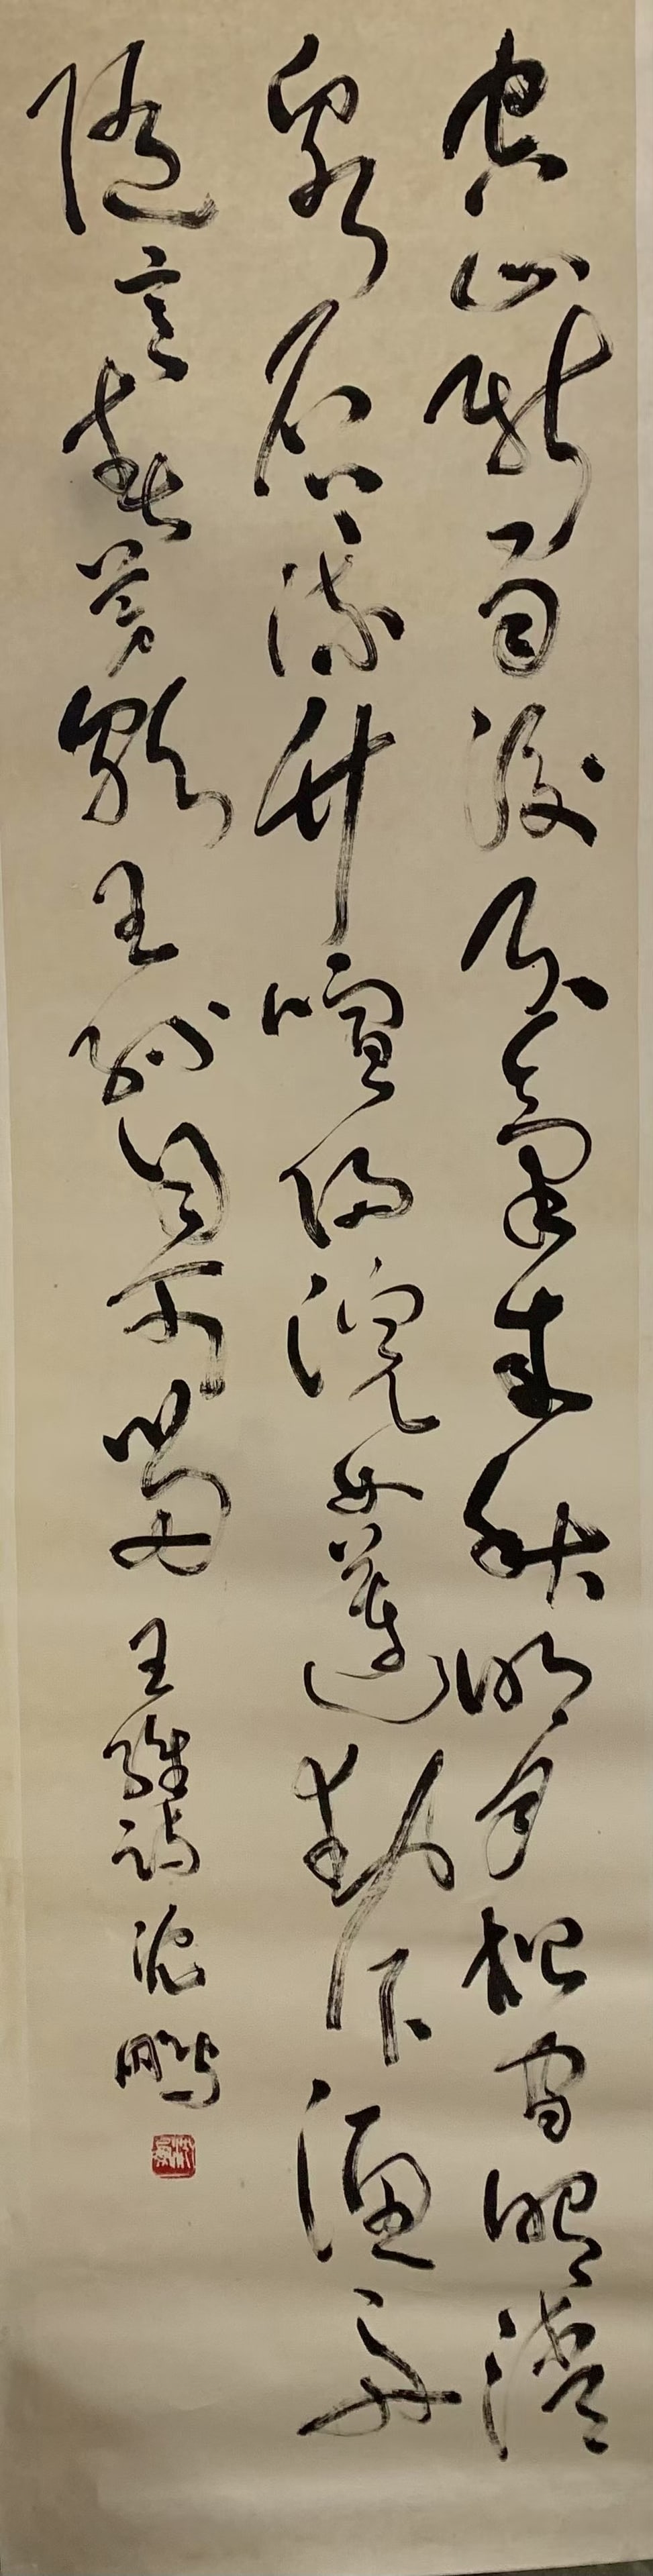 空山新雨後天氣来秋明月松間照清
泉石上流竹喧歸浣女蓮動下漁舟
随意春芳歇王孫自可留 王維詩 沈鵬